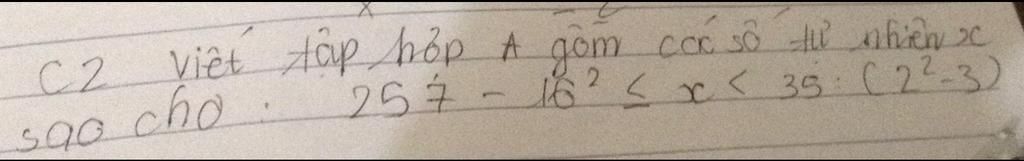 C2 viết tập hợp A gồm các số tự nhiên x
sao cho : 257 - 16² ≤ x < 35 : (2² - 3)